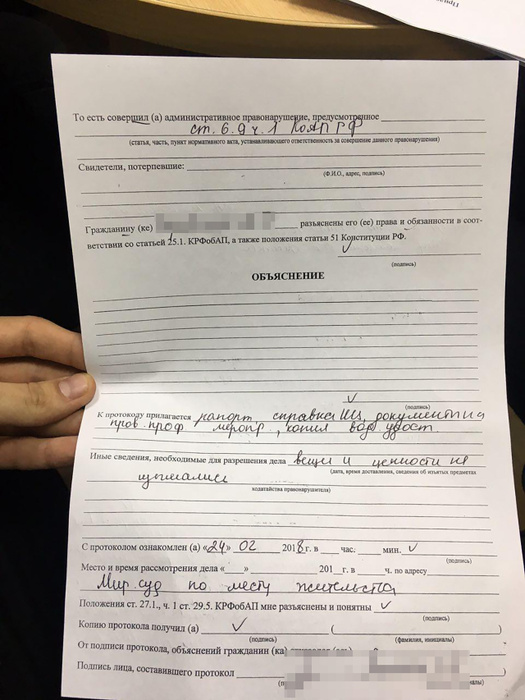 То есть совершил (а) административное правонарушение, предусмотренное
ст. 6.9 ч. 1 КоАП РФ
(статья, часть, пункт нормативного акта, устанавливающего ответственность за совершение данного правонарушения)
Свидетели, потерпевшие:
(Ф.И.О., адрес, подпись)
Гражданину (ке) разъяснены его (ее) права и обязанности в соот-
ветствии со статьей 25.1. КРФобАП, а также положения статьи 51 Конституции РФ.
(подпись)
ОБЪЯСНЕНИЕ
(подпись)
К протоколу прилагается рапорт, справка ИЦ, документы
пров. проф меропр, копия вод. удост.
Иные сведения, необходимые для разрешения дела вещи и ценности не
(дата, время доставления, сведения об изъятых предметах
изымались
ходатайства правонарушителя)
С протоколом ознакомлен (а) «24» 02 2018 г. в час. мин.
(подпись)
Место и время рассмотрения дела « » 201 г. в ч. по адресу
Мир. суд по месту жительства
Положения ст. 27.1., ч. 1 ст. 29.5. КРФобАП мне разъяснены и понятны
(подпись)
Копию протокола получил (а) ( )
(подпись) (фамилия, инициалы)
От подписи протокола, объяснений гражданин (ка)
Подпись лица, составившего протокол